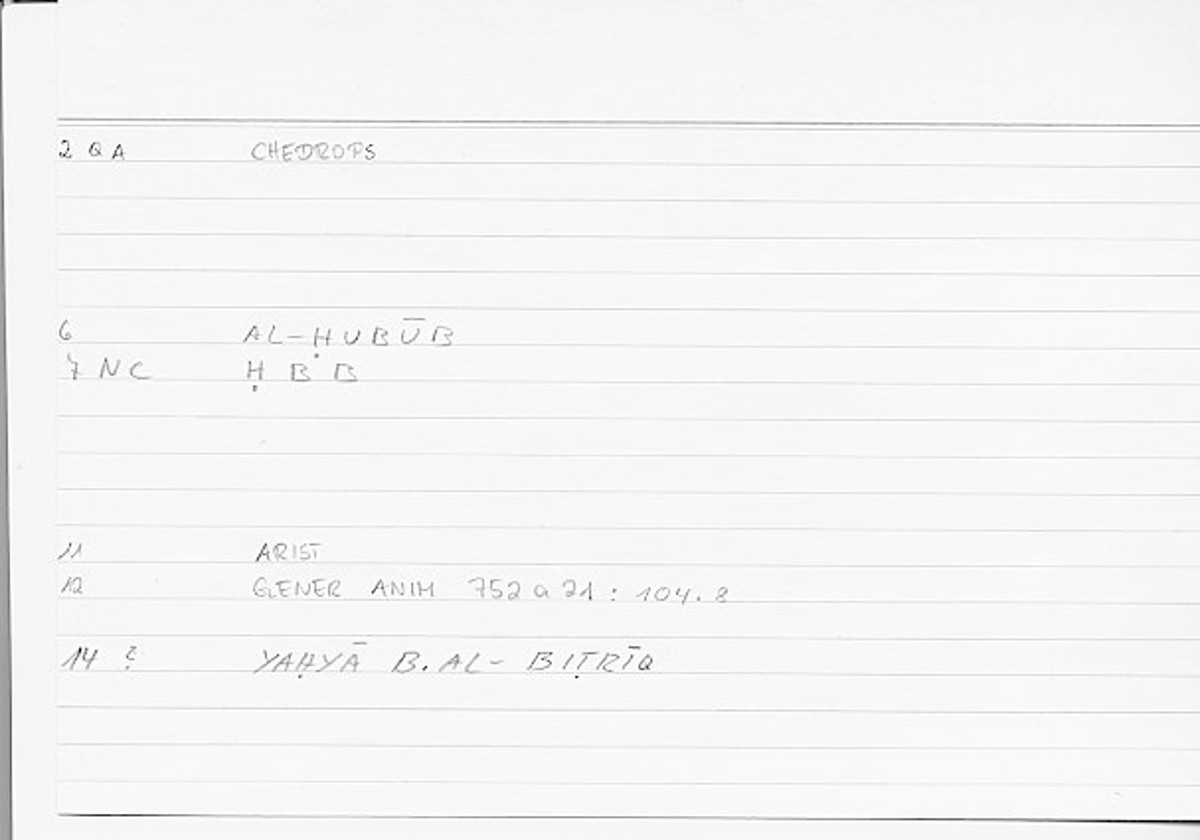 2 Q A CHEDROPS
6 AL-ḤUBŪB
7 N C Ḥ B B
11 ARIST
12 GENER ANIM 752 a 21 : 104.8
14 ? YAḤYĀ B. AL-BIṬRĪQ